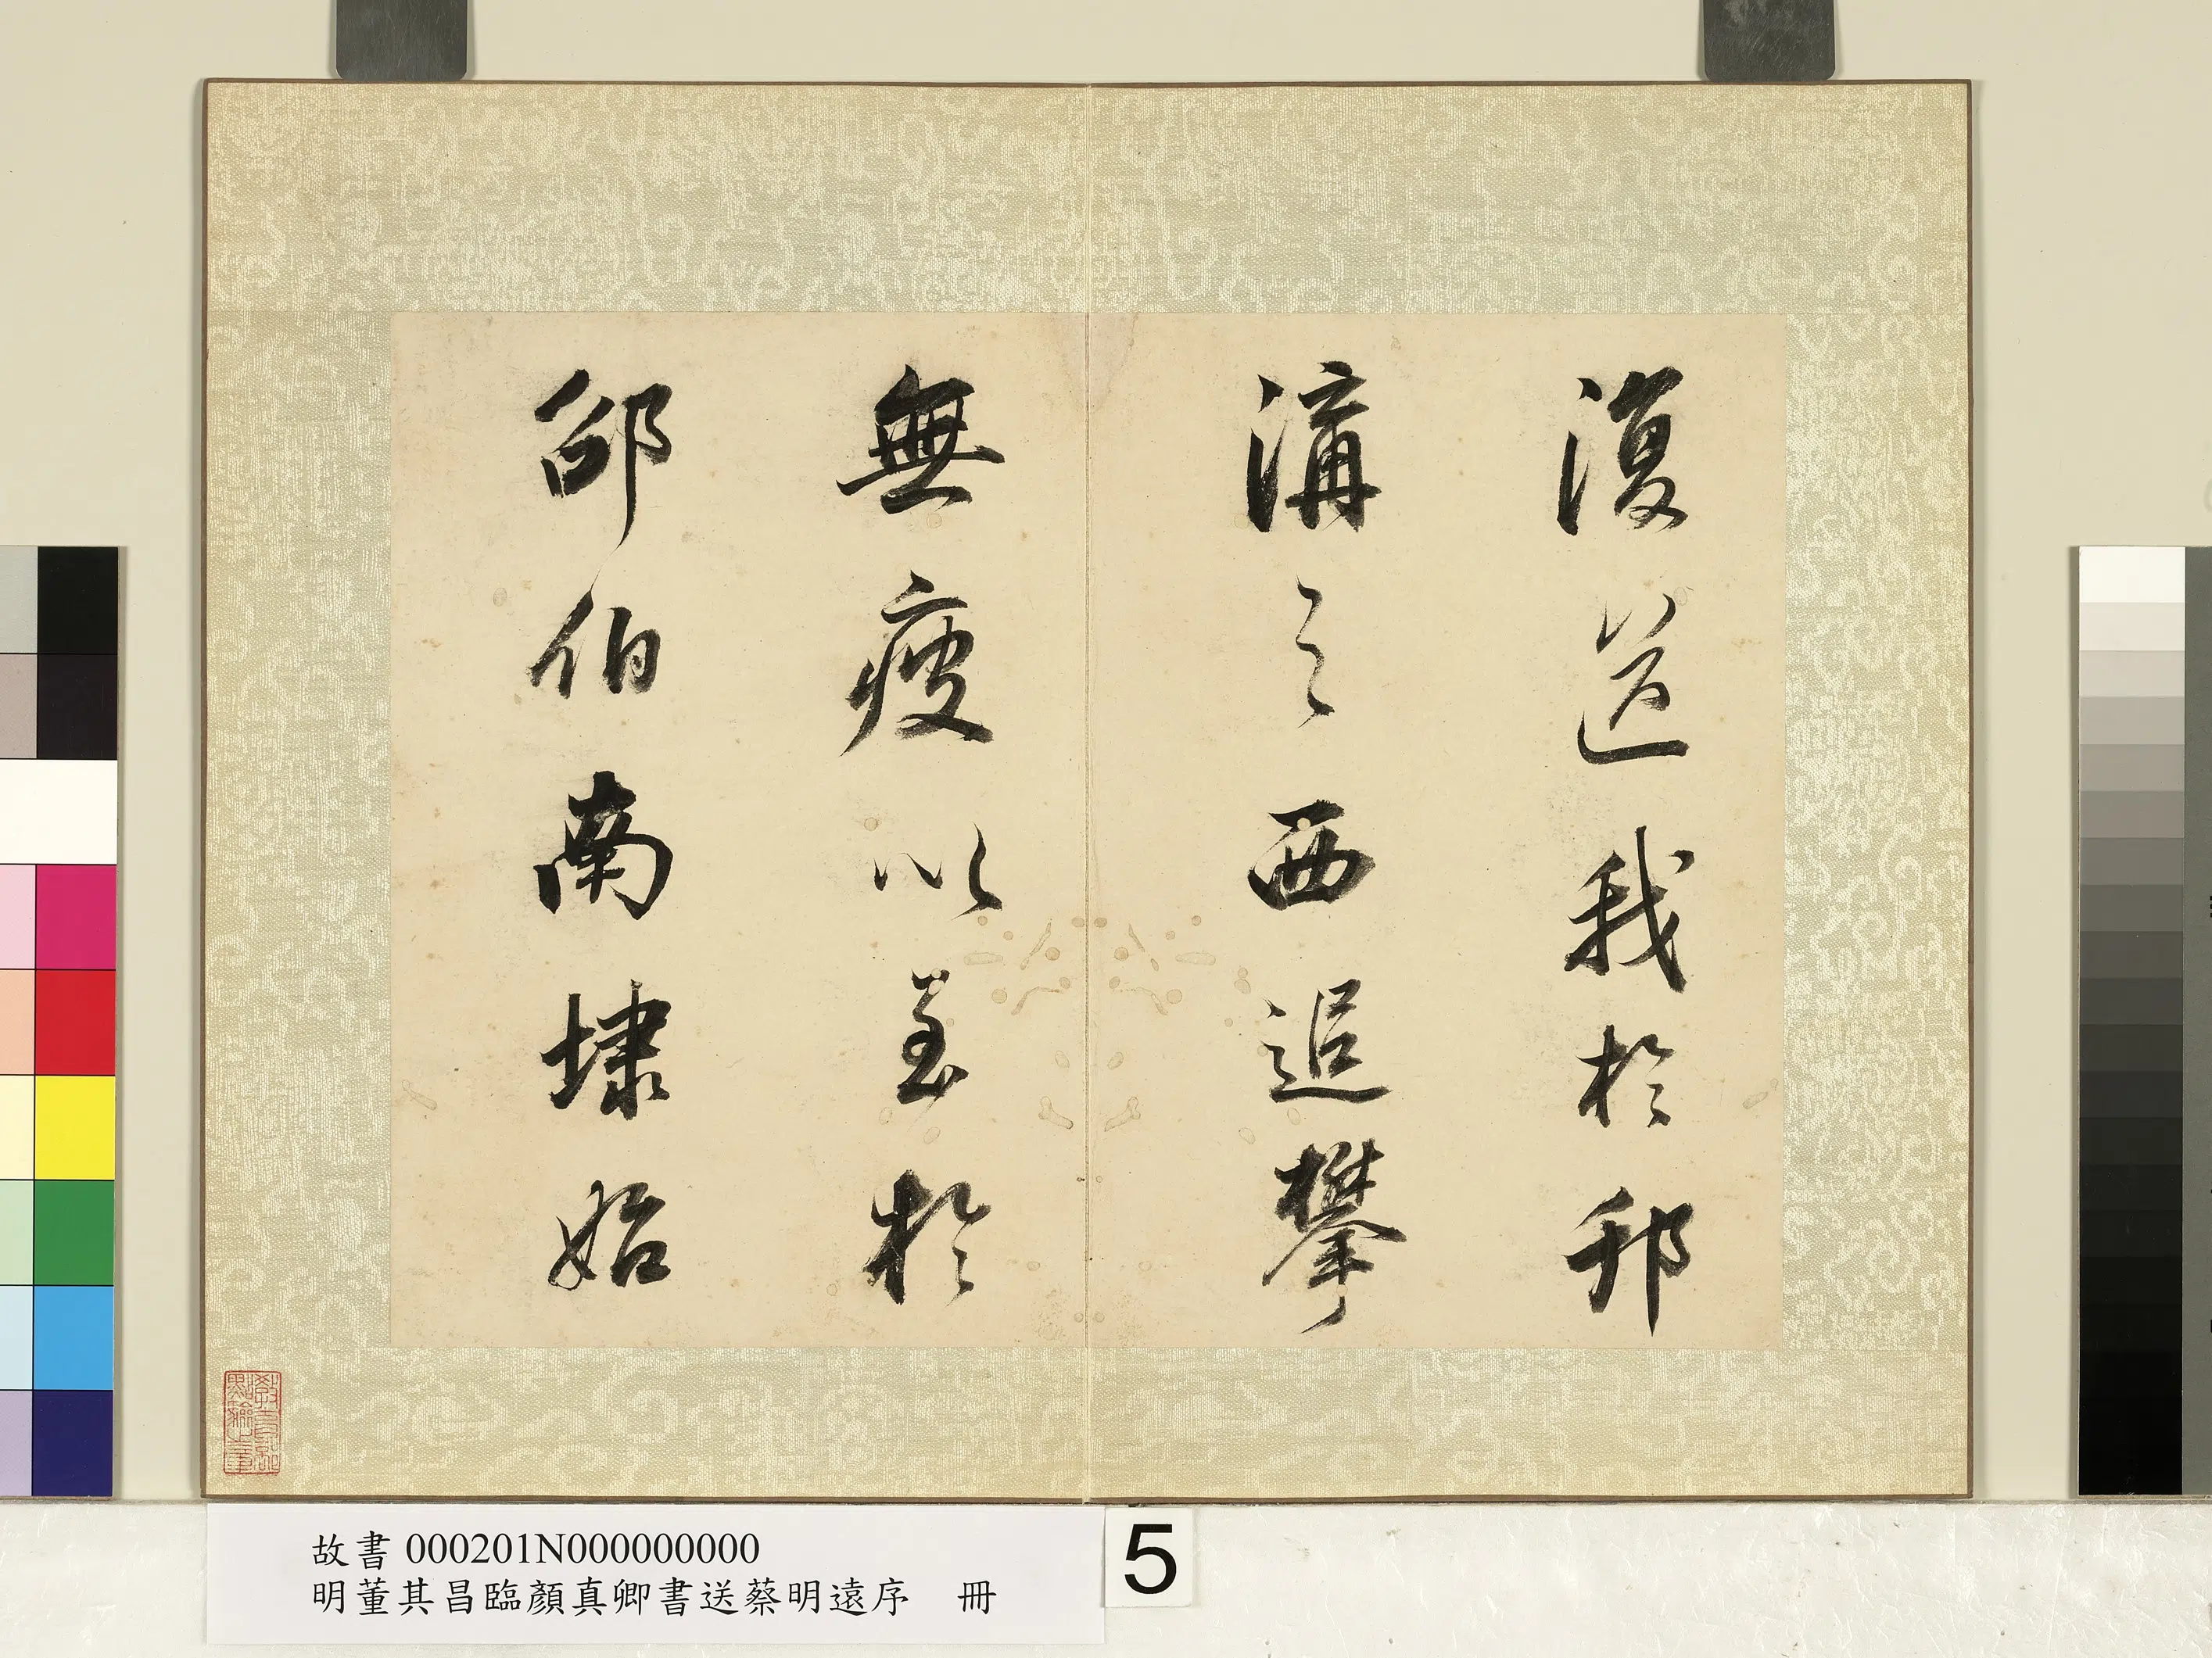 復送我於邗
溝之西追攀
無疲以至於
邵伯南埭始
教育部
點驗之章
故書 000201N000000000
明董其昌臨顏真卿書送蔡明遠序 冊
5